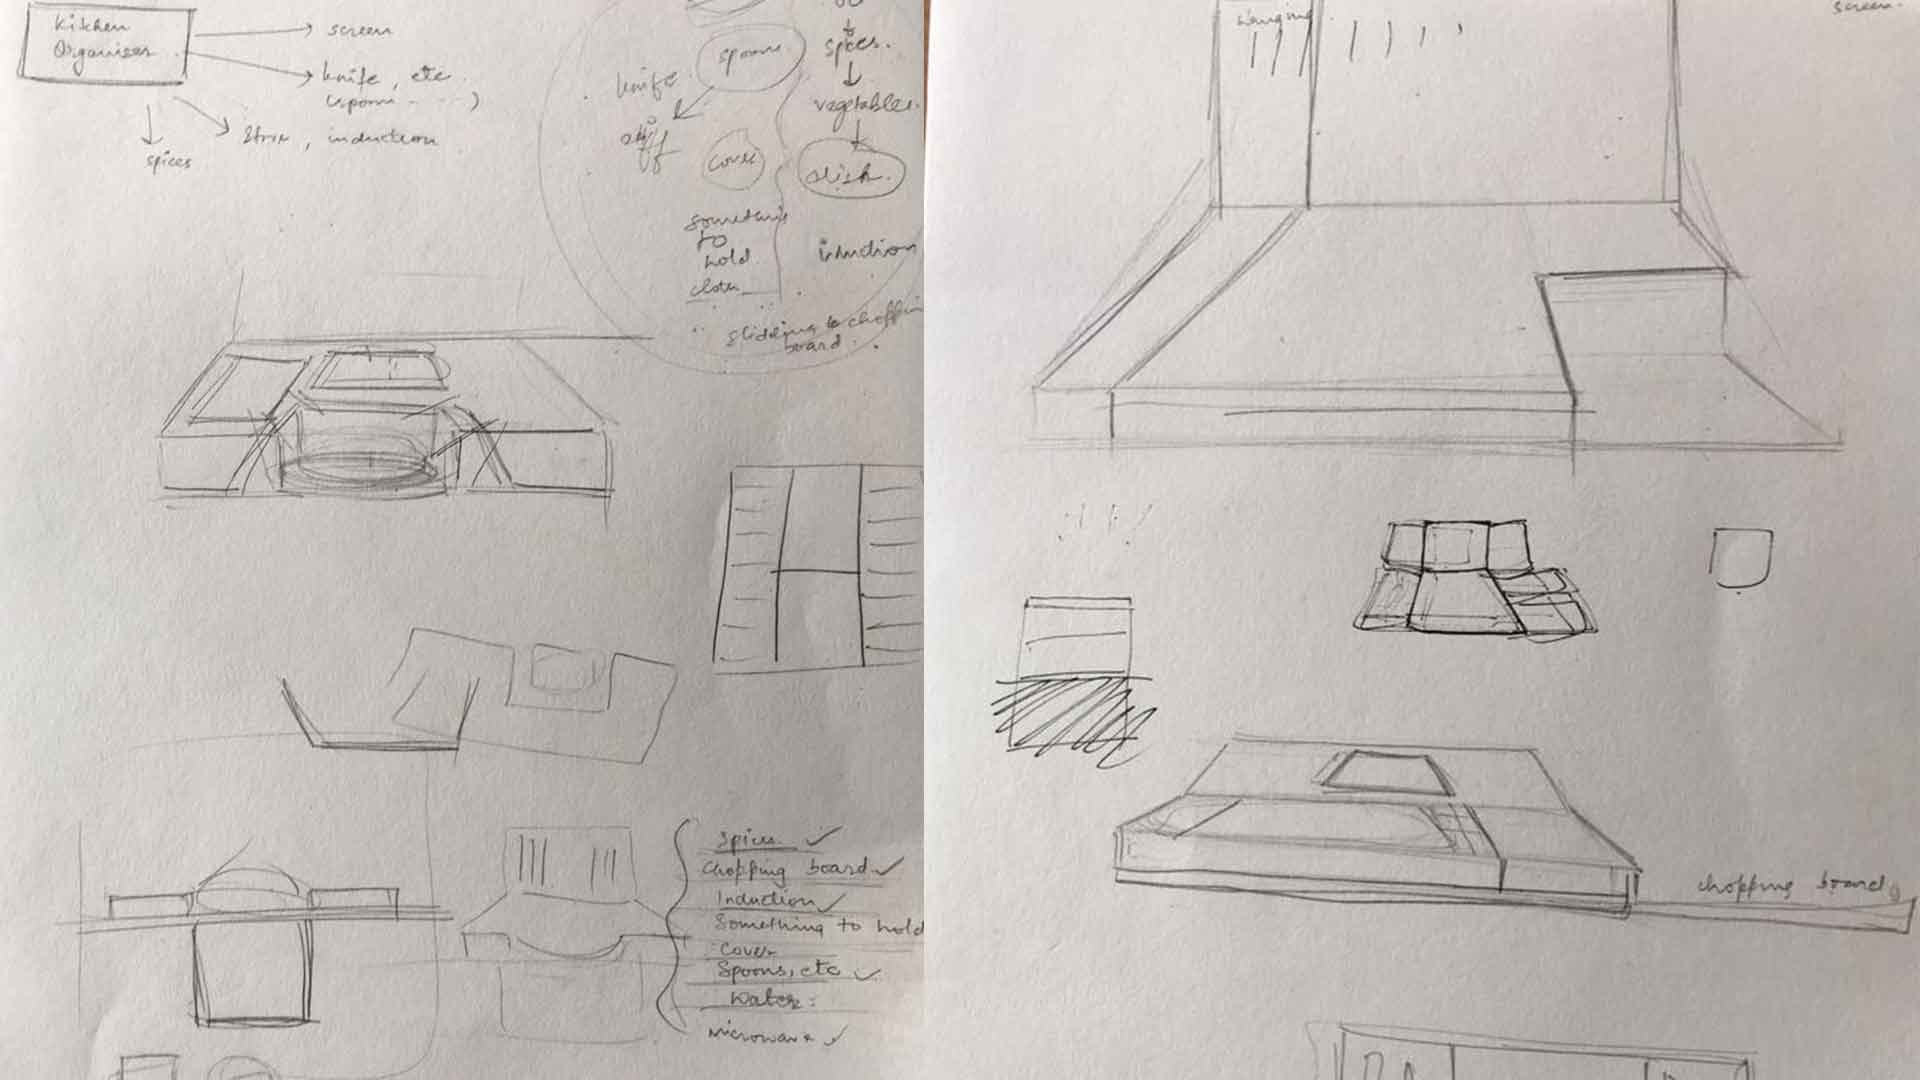 Kitchen
Organiser
screen
knife, etc
(spoon - - - )
induction
spices
spoon
knife
spices.
vegetables.
cover
dish.
something
to
hold
cover
induction
slidding to choppin
board.
Spices ✓
Chopping board ✓
Induction ✓
Something to hold
cover
Spoons, etc ✓
Water:
Microwave ✓
Hanging
Screen.
chopping board